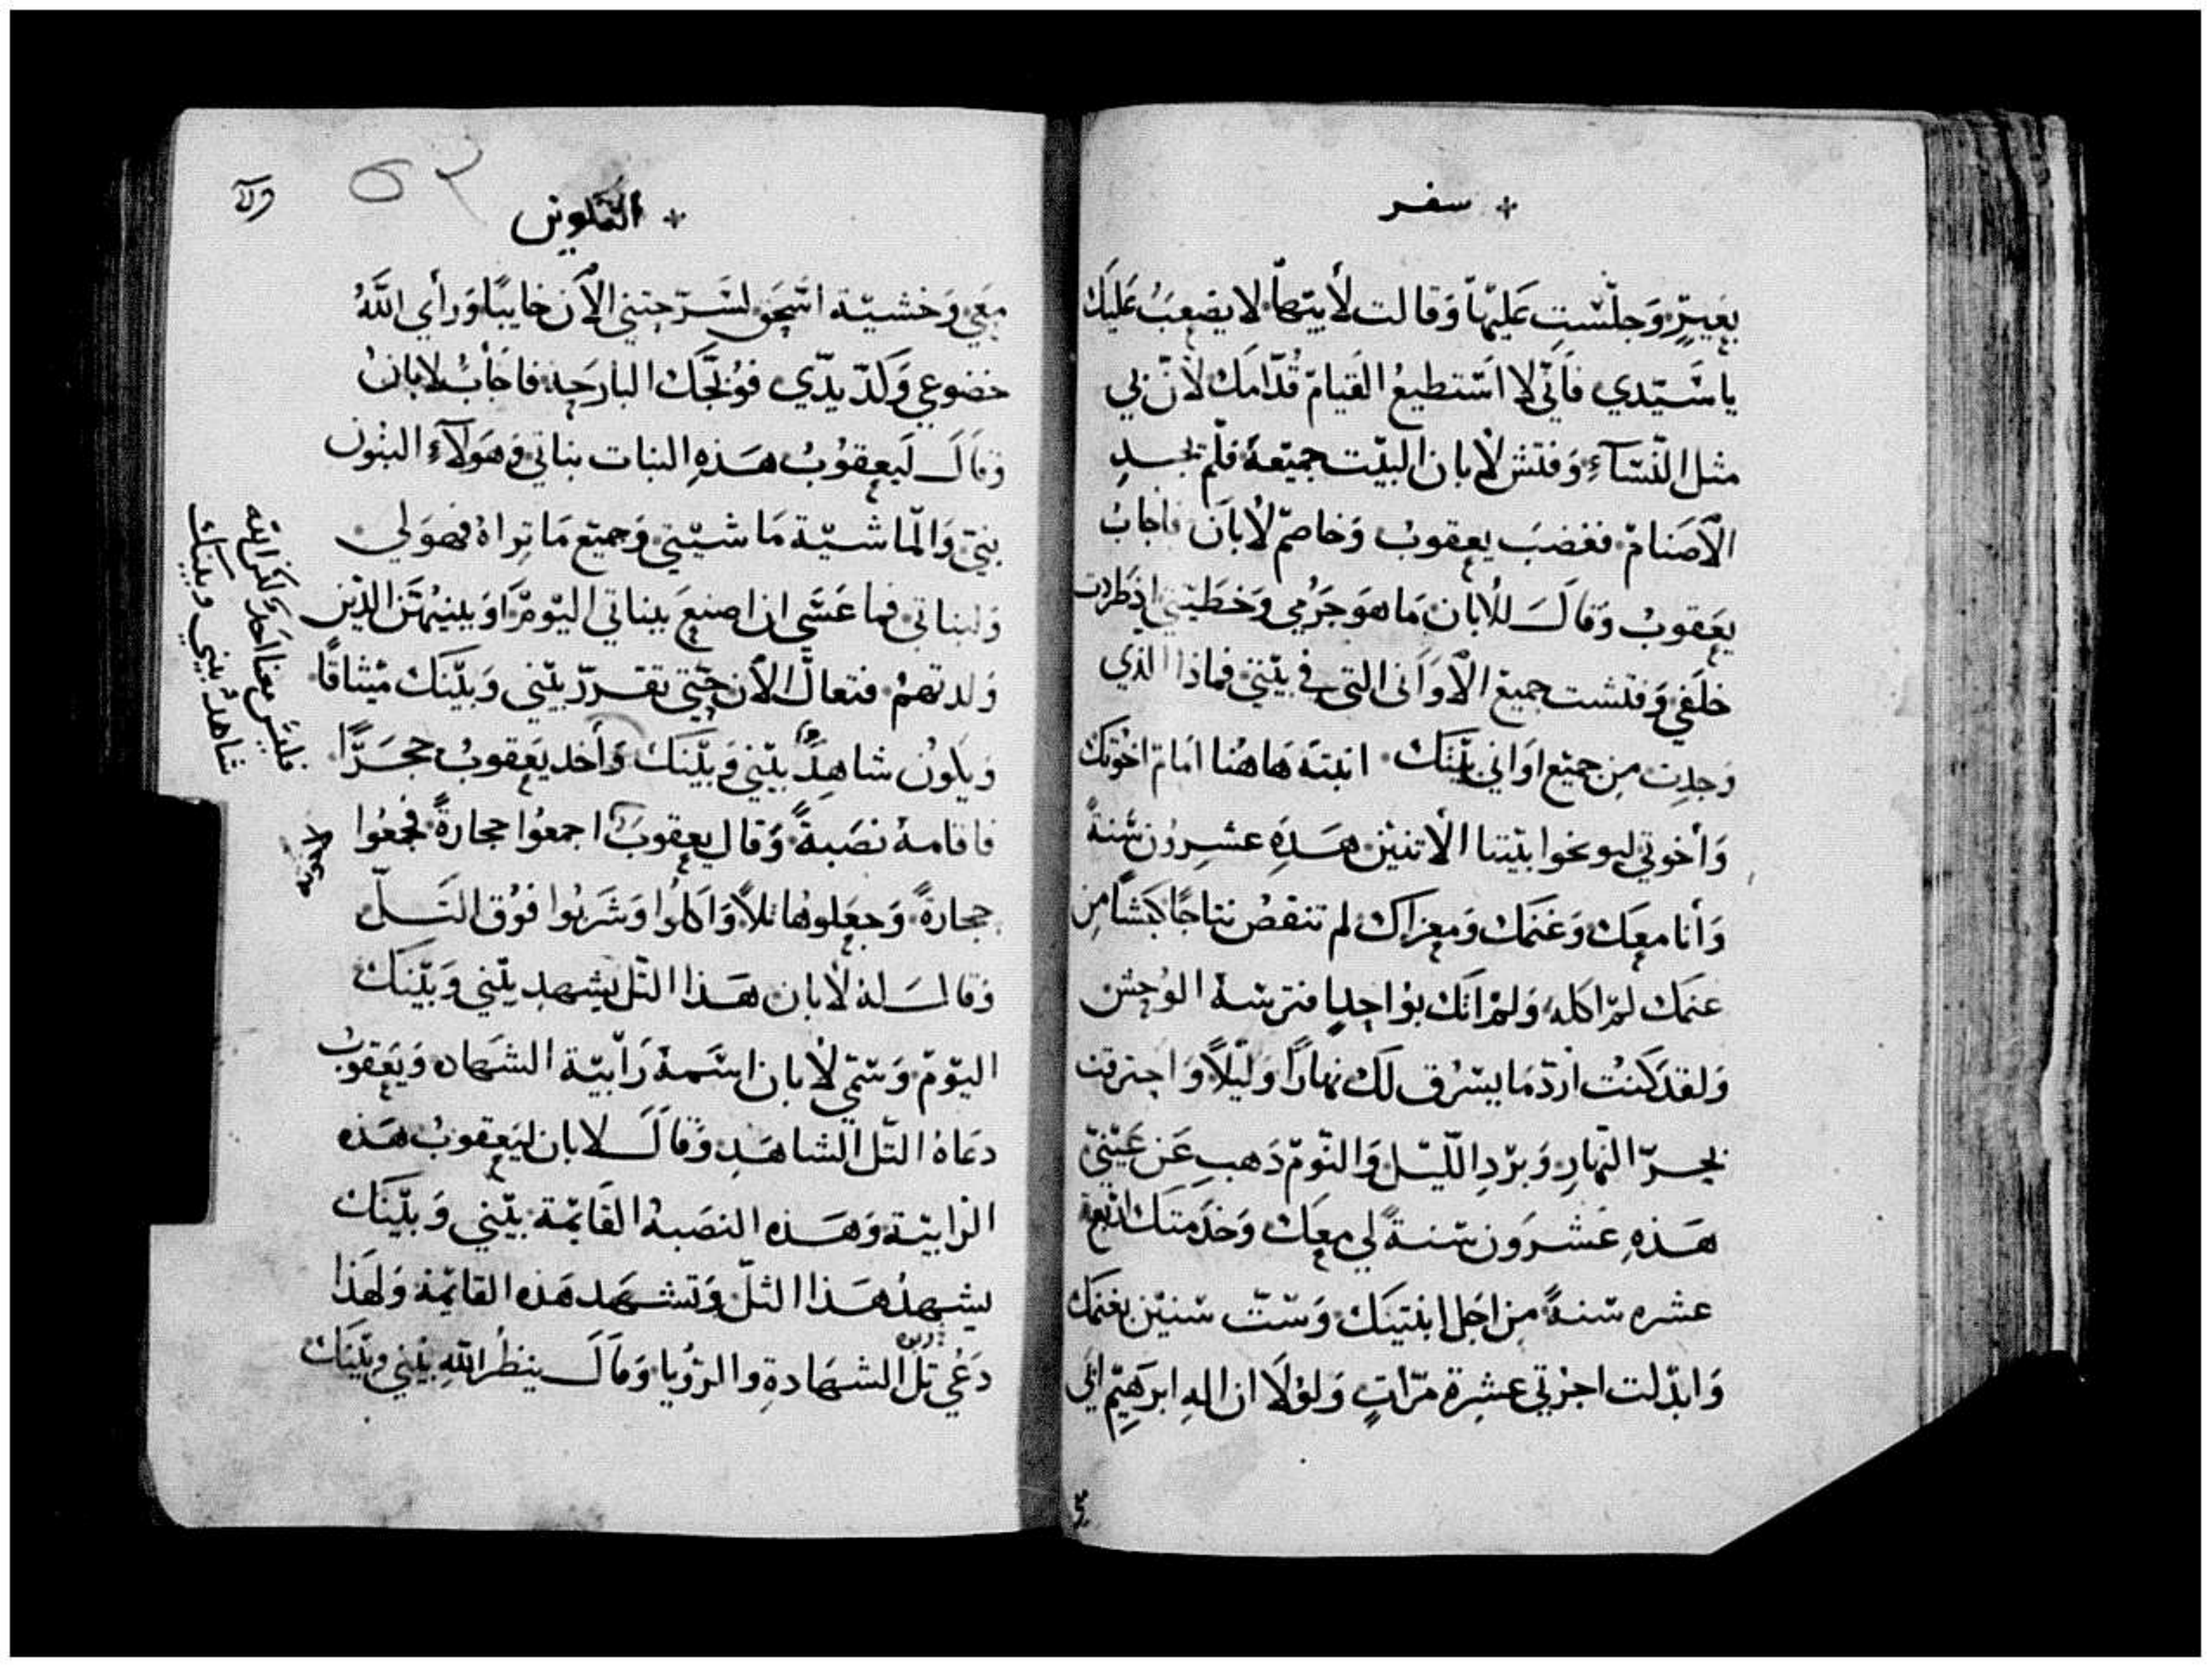 سفر
بعيرٍ وَجلسَتِ عَليهَا وَقالت لأبيهَا لا يصْعبُ عَليك
يا سَيّدي فاَنّي لا اَستطيعُ القيامَ قُدّامَك لأنّ بي
مثل النّسَآءِ وَفتش لابان البيْت جميعَهُ فلم يجدِ
الأَصَنامَ فغضبَ يعقوبُ وَخاصمَ لابَان فاجابُ
يعَقوبُ وَقالَ للابان مَا هوَ جَرُمي وَخَطيتي اذ طردت
خلَفي وَفتشت جميع الاَوَاني التي في بيْتي فماذا الذي
وَجدت مِن جميْع اوَاني بيْتَك اثبتهَ هَاهُنا امَامَ اخوُتك
وَأخوتي ليوبخوا بيْننا الاثنيْن هَذهِ عشرون سَنةً
وَأنا معَك وَغنمَك وَمعزاك لم تنقصُ نتاجًا كبشًا مِن
غنمَك لمْ اكله وَلمْ اتك بوُاحدٍ افترسَهُ الوُحش
وَلقدَ كنتُ اردّ مَا يسْرُق لَك نهارًا وَليْلاً وَاحترقت
بحرّ النهارِ وَبرْدِ اللّيْل وَالنّومْ ذَهبِ عَن عَيْنيّ
هَذهِ عَشرَون سَنةً لي معَك وَخدَمتك اربعَة
عشره سَنةً مِن اجَل ابنتيَك وَسَتّ سَنيْن بغنمَك
وَابدّلت اجرْتي عشرة مرّاتٍ وَلوْلاَ ان الهِ ابرَهيم ابي
التكوين
معَي وَخشيَة اسْحَق لسَرّحتني الاَن خايبًا وَرأي اللَّهُ
خضوعي وَكدّ يدّي فوُبّخَك البارحَة فاجَابُ لابانُ
وَقالَ لَيعقوُبُ هَذهِ البنات بناتي وَهَولاَءِ البنُون
بنيّ وَالماشيَة مَاشيْتي وَجميَع مَا تراهُ فهوَ لي
وَلبناتي فما عَسَي ان اصنعَ ببناتي اليَومْ اوَ بنيْهَن الذيْن
وَلدتهمْ فتعالَ الاَن حَتي نقررّ بيْني وَبيْنَك ميْثاقًا
وَيكوُن شاهدًَ بيْني وَبيْنَك وَأخد يَعقوبُ حجَرًّا
فاقامهُ نصَبةً وَقال يعقوبَ اجمعُوا حجارةً فجمعُوا
حجارةً وَجعَلوهَا تلاً وَاكلوُا وَشَربُوا فوُق التَلّ
وَقالَ لهُ لابان هَذا التّل يشهد بيْني وَبيْنَك
اليَومْ وَسَمّي لابان اسَمهُ رَابيَة الشهَاده وَيَعقوبُ
دعَاهُ التّل الشاهَد وَقالَ لابان ليَعقوبُ هَذه
الرابيَة وَهَذه النصَبهُ القَايمَة بيْني وَبيْنَك
يشهدُ هَذا التلّ وَتشهَد هَذه القايمَة وَلهَذا
دَعُي تلّ الشهَادةِ والرؤيا وَقالَ ينظرُ اللهِ بيْني وبيْنَك
فليَس معَنا احَدٌ لكن الله
شاهدٌ بيني وبيَنك